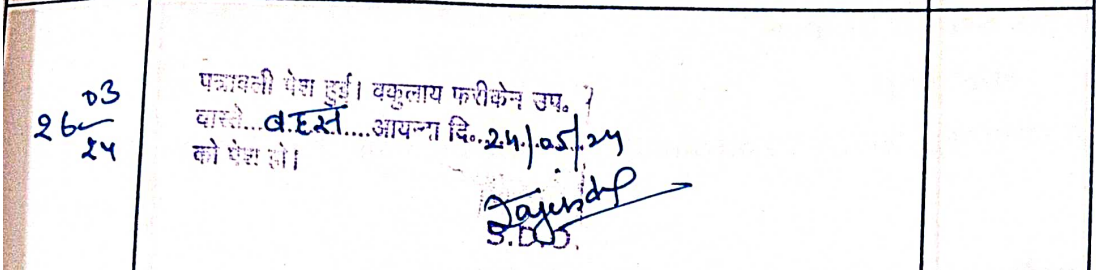 26/03/24
पत्रावली पेश हुई। वकुलाय फरीकेन उप. 7
वास्ते...बहस....आयन्दा दि..24/05/24
को पेश हो।
S.D.O.